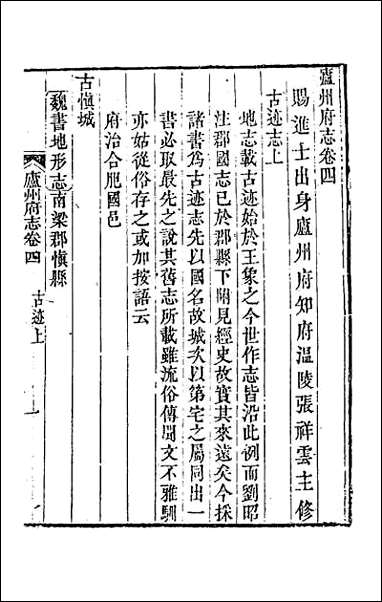 廬州府志卷四
賜進士出身廬州府知府溫陵張祥雲主修
古迹志上
地志載古迹始於王象之今世作志皆沿此例而劉昭
注郡國志已於郡縣下附見經史故實其來遠矣今採
諸書為古迹志先以國名故城次以第宅之屬同出一
書必取最先之說其舊志所載雖流俗傳聞文不雅馴
亦姑從俗存之或加按語云
府治合肥國邑
古慎城
魏書地形志南梁郡慎縣
廬州府志卷四 古迹上 一